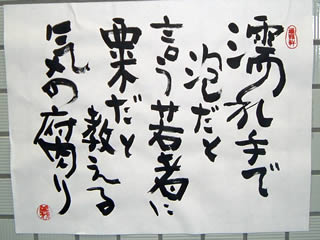 濡れ手で
泡だと
言う若者に
粟だと
教える
気の腐り